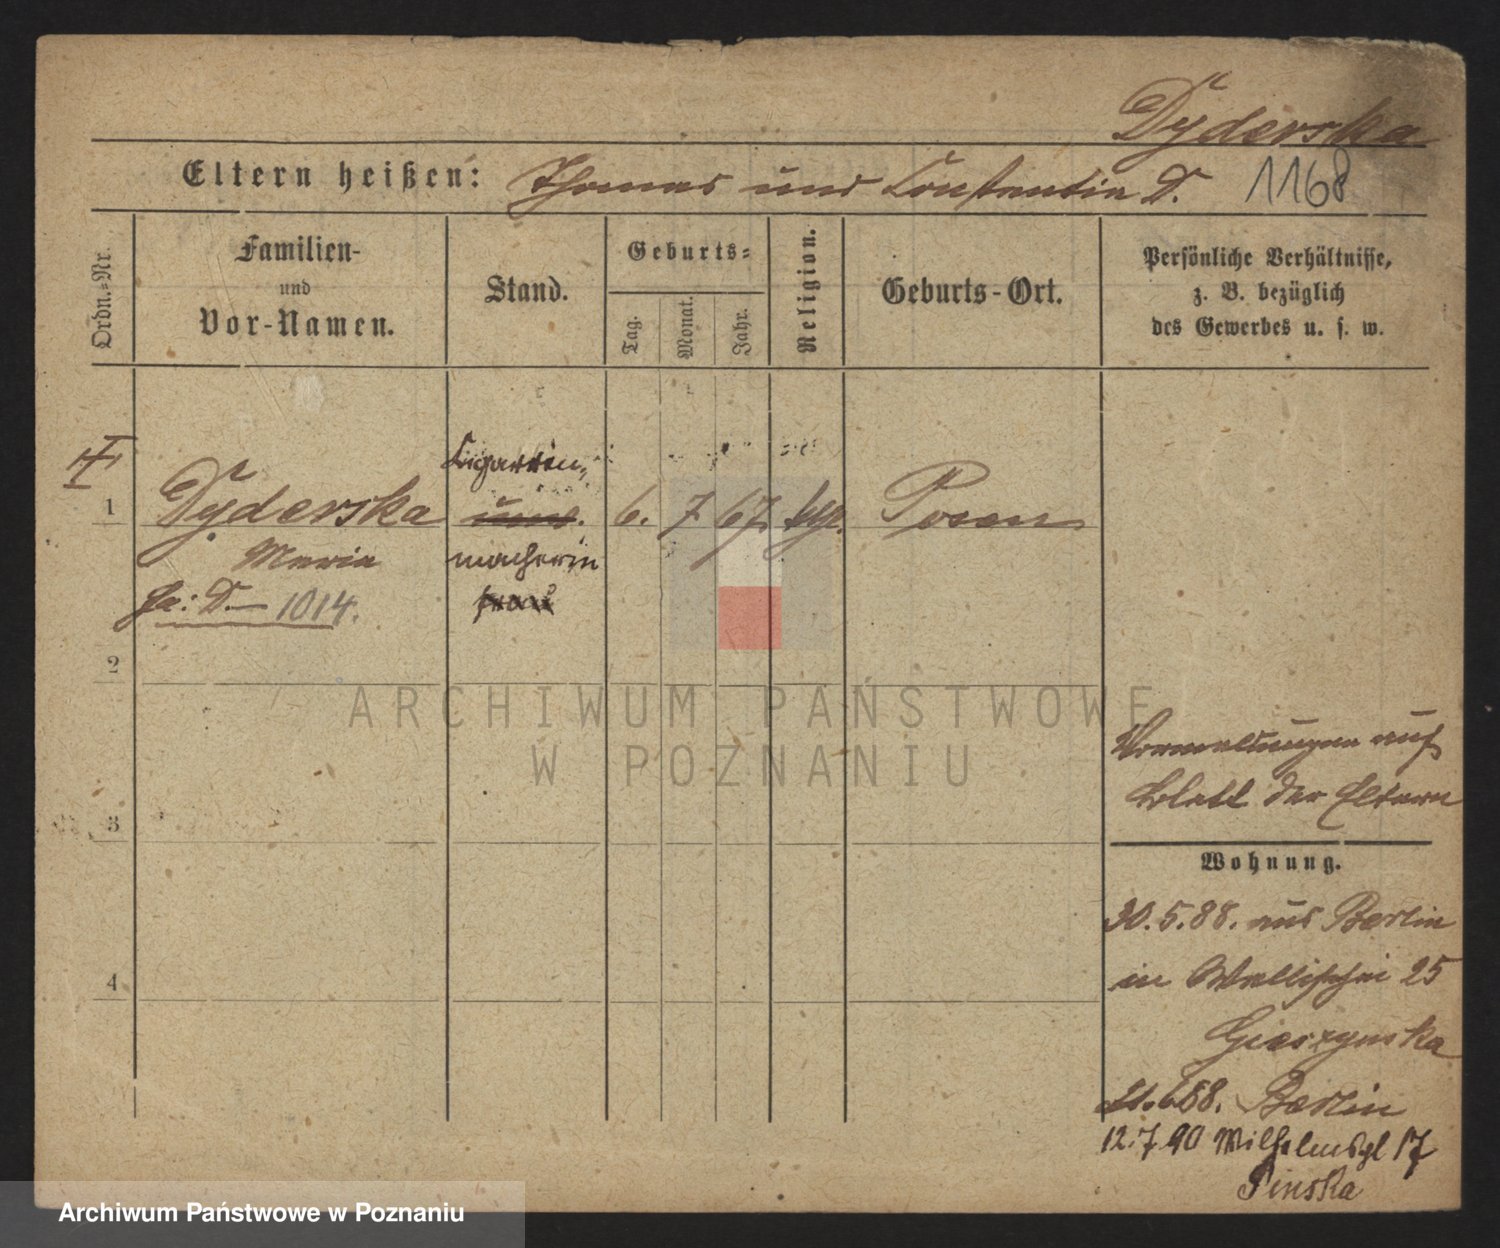 Dyderska
Eltern heißen: Thomas und Constantia D. 1168
Ordn.=Nr.
Familien-
und
Vor-Namen.
Stand.
Geburts=
Tag.
Monat.
Jahr.
Religion.
Geburts-Ort.
Persönliche Verhältnisse,
z. B. bezüglich
des Gewerbes u. s. w.
Cigarren,
1 Dyderska unv. 6. 7 67 Posen
Maria macherin
D. — 1014.
2
ARCHIWUM PAŃSTWOWE
W POZNANIU
Vormeldungen auf
Blatt der Eltern
3
Wohnung.
30.5.88. aus Berlin
4 in Wallischei 25
Gieszynska
Berlin
12.7.90 Wilhelmspl 17
Pinska
Archiwum Państwowe w Poznaniu